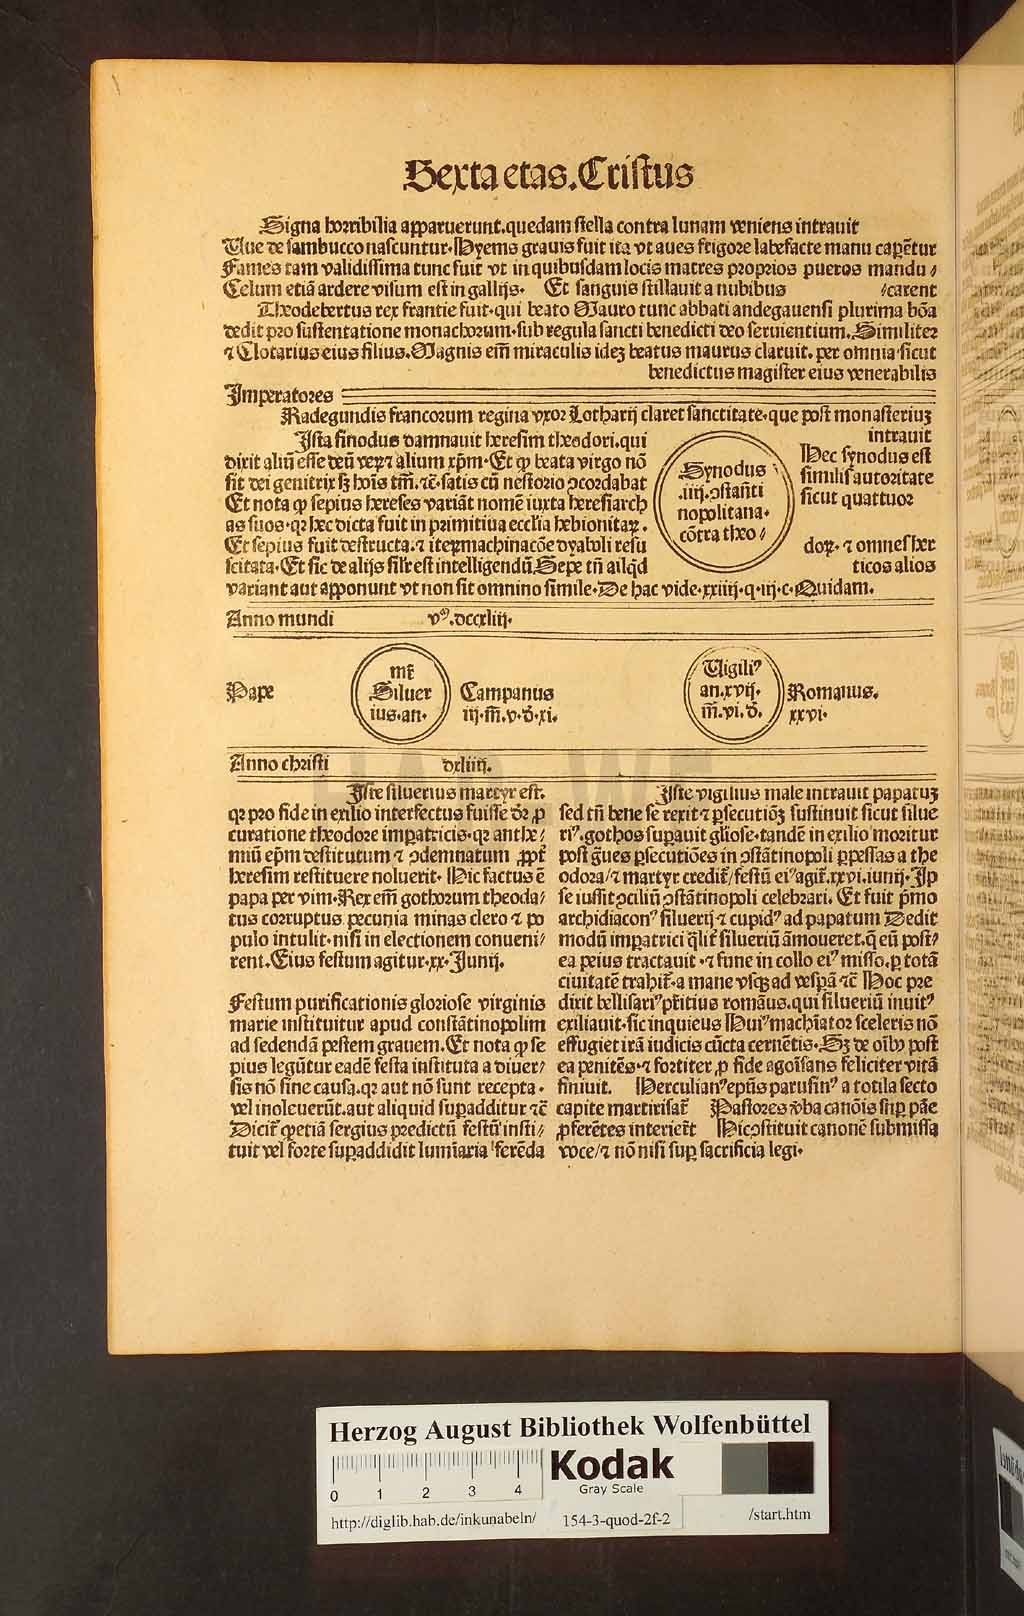 Sexta etas. Cristus
Signa horribilia apparuerunt. quedam stella contra lunam veniens intrauit
Uue de sambucco nascuntur. Hyems grauis fuit ita vt aues frigore labefacte manu caperẽtur
Fames tam validissima tunc fuit vt in quibusdam locis matres proprios pueros mandu⸗
Celum etiã ardere visum est in gallijs. Et sanguis stillauit a nubibus ⸗carent
Theodebertus rex frantie fuit. qui beato Mauro tunc abbati andegauensi plurima bõa
dedit pro sustentatione monachorum. sub regula sancti benedicti deo seruientium. Similiter
⁊ Clotarius eius filius. Magnis em̃ miraculis idez beatus maurus claruit. per omnia sicut
benedictus magister eius venerabilis
Imperatores
Radegundis francorum regina vxor Lotharij claret sanctitate. que post monasteriuz
intrauit
Ista sinodus damnauit heresim theodori. qui
dixit aliũ esse deũ veꝝ ⁊ alium xp̃m. Et ꝙ beata virgo nõ
sit dei genitrix sꝫ hoĩs tm̃. ⁊c̃. satis cũ nestorio ɔcordabat
Et nota ꝙ sepius hereses variãt nomẽ iuxta heresiarch
as suos. qꝛ hec dicta fuit in primitiua ecclia hebionitaꝝ.
Et sepius fuit destructa. ⁊ iteꝝ machinacõe dyaboli resu
scitata. Et sic de alijs silr̃ est intelligendũ. Sepe tñ ailqd
variant aut apponunt vt non sit omnino simile. De hac vide. xxiiij. q. iij. c. Quidam.
Synodus
.iiij. ɔstañti
nopolitana.
cõtra theo⸗
Hec synodus est
similis autoritate
sicut quattuor
doꝝ. ⁊ omnes her
ticos alios
Anno mundi vᵐ. dccxliij.
Pape
mr̃
Siluer
ius. an.
Campanus
iij. m̃. v. d̃. xi.
Uigiliꝰ
an. xvij.
m̃. vi. d̃.
Romanus.
xxvi.
Anno christi dxliiij.
Iste siluerius martyr est.
qꝛ pro fide in exilio interfectus fuisse dr̃ ꝓ
curatione theodore imꝑatricis. qꝛ anthe⸗
miũ ep̃m destitutum ⁊ ɔdemnatum ꝓpt̃
heresim restituere noluerit. Hic factus ẽ
papa per vim. Rex em̃ gothorum theoda⸗
tus corruptus pecunia minas clero ⁊ po
pulo intulit. nisi in electionem conueni⸗
rent. Eius festum agitur. xx. Junij.
Festum purificationis gloriose virginis
marie instituitur apud constãtinopolim
ad sedendã pestem grauem. Et nota ꝙ se
pius legũtur eadẽ festa instituta a diuer⸗
sis nõ sine causa. qꝛ aut nõ sunt recepta.
vel inoleuerũt. aut aliquid suꝑadditur ⁊c̃
Dicit̃ ꝙ etiã sergius predictũ festũ insti⸗
tuit vel forte suꝑaddidit lumĩaria ferẽda
Iste vigilius male intrauit papatuꝫ
sed tñ bene se rexit ⁊ ꝑsecutiõꝫ sustinuit sicut silue
riꝰ. gothos suꝑauit gl̃iose. tandẽ in exilio moritur
post g̃ues ꝑsecutiões in ɔstãtinopoli ꝑpessas a the
odora/ ⁊ martyr credit̃/ festũ eiꝰ agit̃. xxvi. iunij. Ip
se iussit ɔciliũ ɔstãtinopoli celebrari. Et fuit p̃mo
archidiaconꝰ siluerij ⁊ cupidꝰ ad papatum Dedit
modũ imꝑatrici q̃lit̃ silueriũ ãmoueret. q̃ eũ post⸗
ea peius tractauit. ⁊ fune in collo eiꝰ misso. ꝑ totã
ciuitatẽ trahit̃. a mane vsqꝫ ad vesꝑã ⁊c̃ Hoc pre
dixit bellisariꝰ pr̃itius romãus. qui silueriũ inuitꝰ
exiliauit. sic inquiens Huiꝰ machĩator sceleris nõ
effugiet irã iudicis cũcta cernẽtis. Sꝫ de oĩbꝰ post
ea penitẽs. ⁊ fortiter ꝓ fide agoĩsans feliciter vitã
finiuit. Herculianꝰ ep̃us parusinꝰ a totila secto
capite martirisat̃ Pastores v̾ba canõis sup̃ pãe
ꝓferẽtes interierũt Hic ɔstituit canonẽ submissa
voce/ ⁊ nõ nisi suꝑ sacrificia legi.
Herzog August Bibliothek Wolfenbüttel
0 1 2 3 4
Kodak
Gray Scale
http://diglib.hab.de/inkunabeln/ 154-3-quod-2f-2 /start.htm